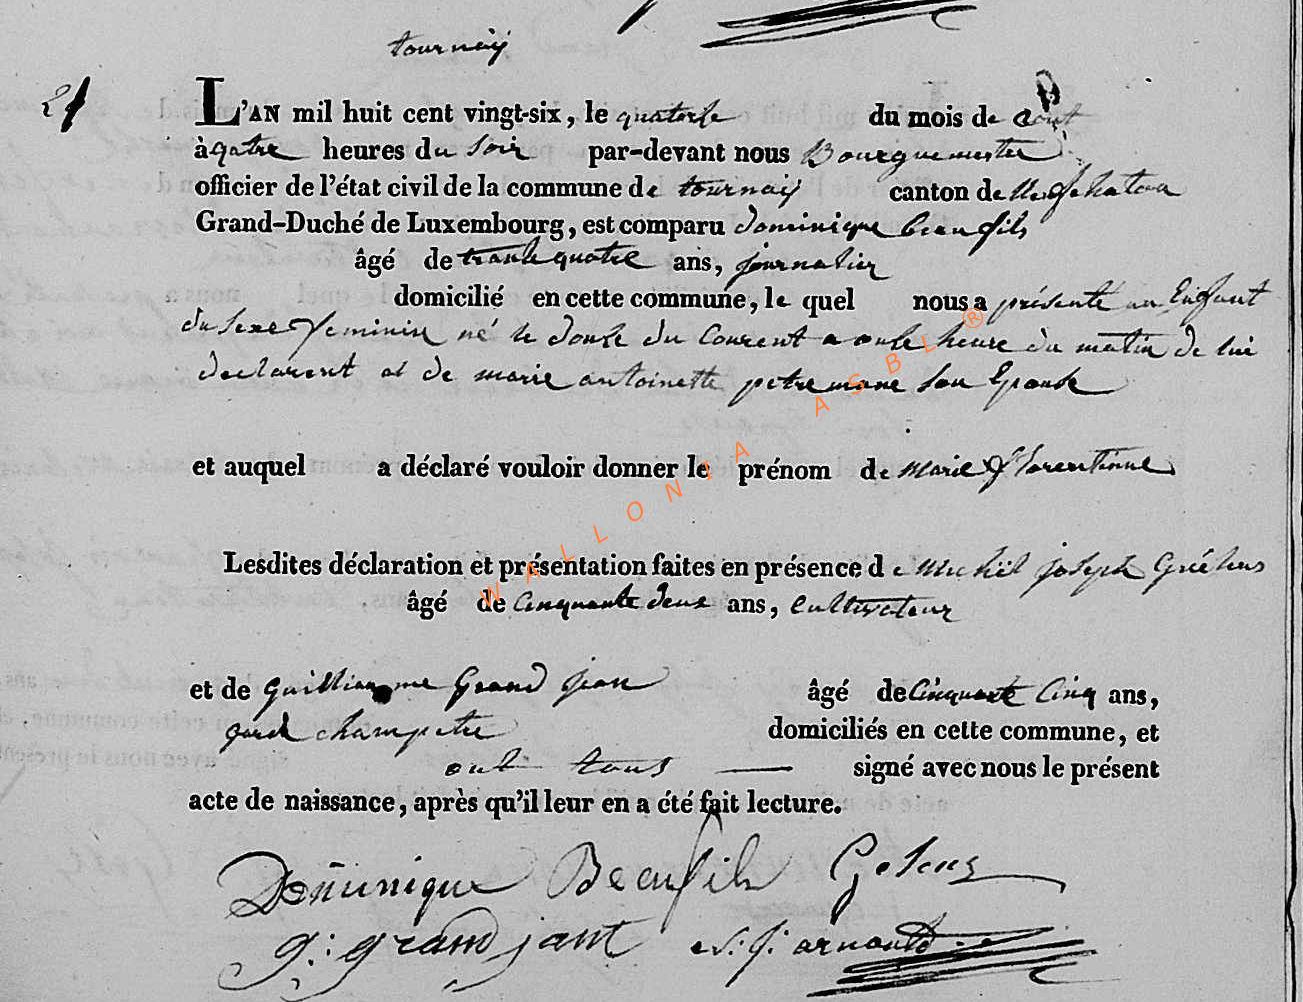 tournaÿ
21
L'AN mil huit cent vingt-six, le quatorse du mois de aout
à qatre heures du soir par-devant nous Bourguemestre
officier de l'état civil de la commune de tournaÿ canton de
Grand-Duché de Luxembourg, est comparu dominique Beaufils
âgé de trante quatre ans, journalier
domicilié en cette commune, le quel nous a présenté un Enfant
du sexe feminin né le douse du Courent a onse heure du matin de lui
declarent et de marie antoinette petremane son Epouse
et auquel a déclaré vouloir donner le prénom de Marie florentinne
Lesdites déclaration et présentation faites en présence de Michel joseph
âgé de Cinquante deux ans, Cultivateur
et de Guilliaume Grand jean âgé de Cinquante Cinq ans,
gard champetre domiciliés en cette commune, et
ont tous signé avec nous le présent
acte de naissance, après qu'il leur en a été fait lecture.
Dominique Beaufils
g: grandjant arnould
WALLONIA ASBL ®